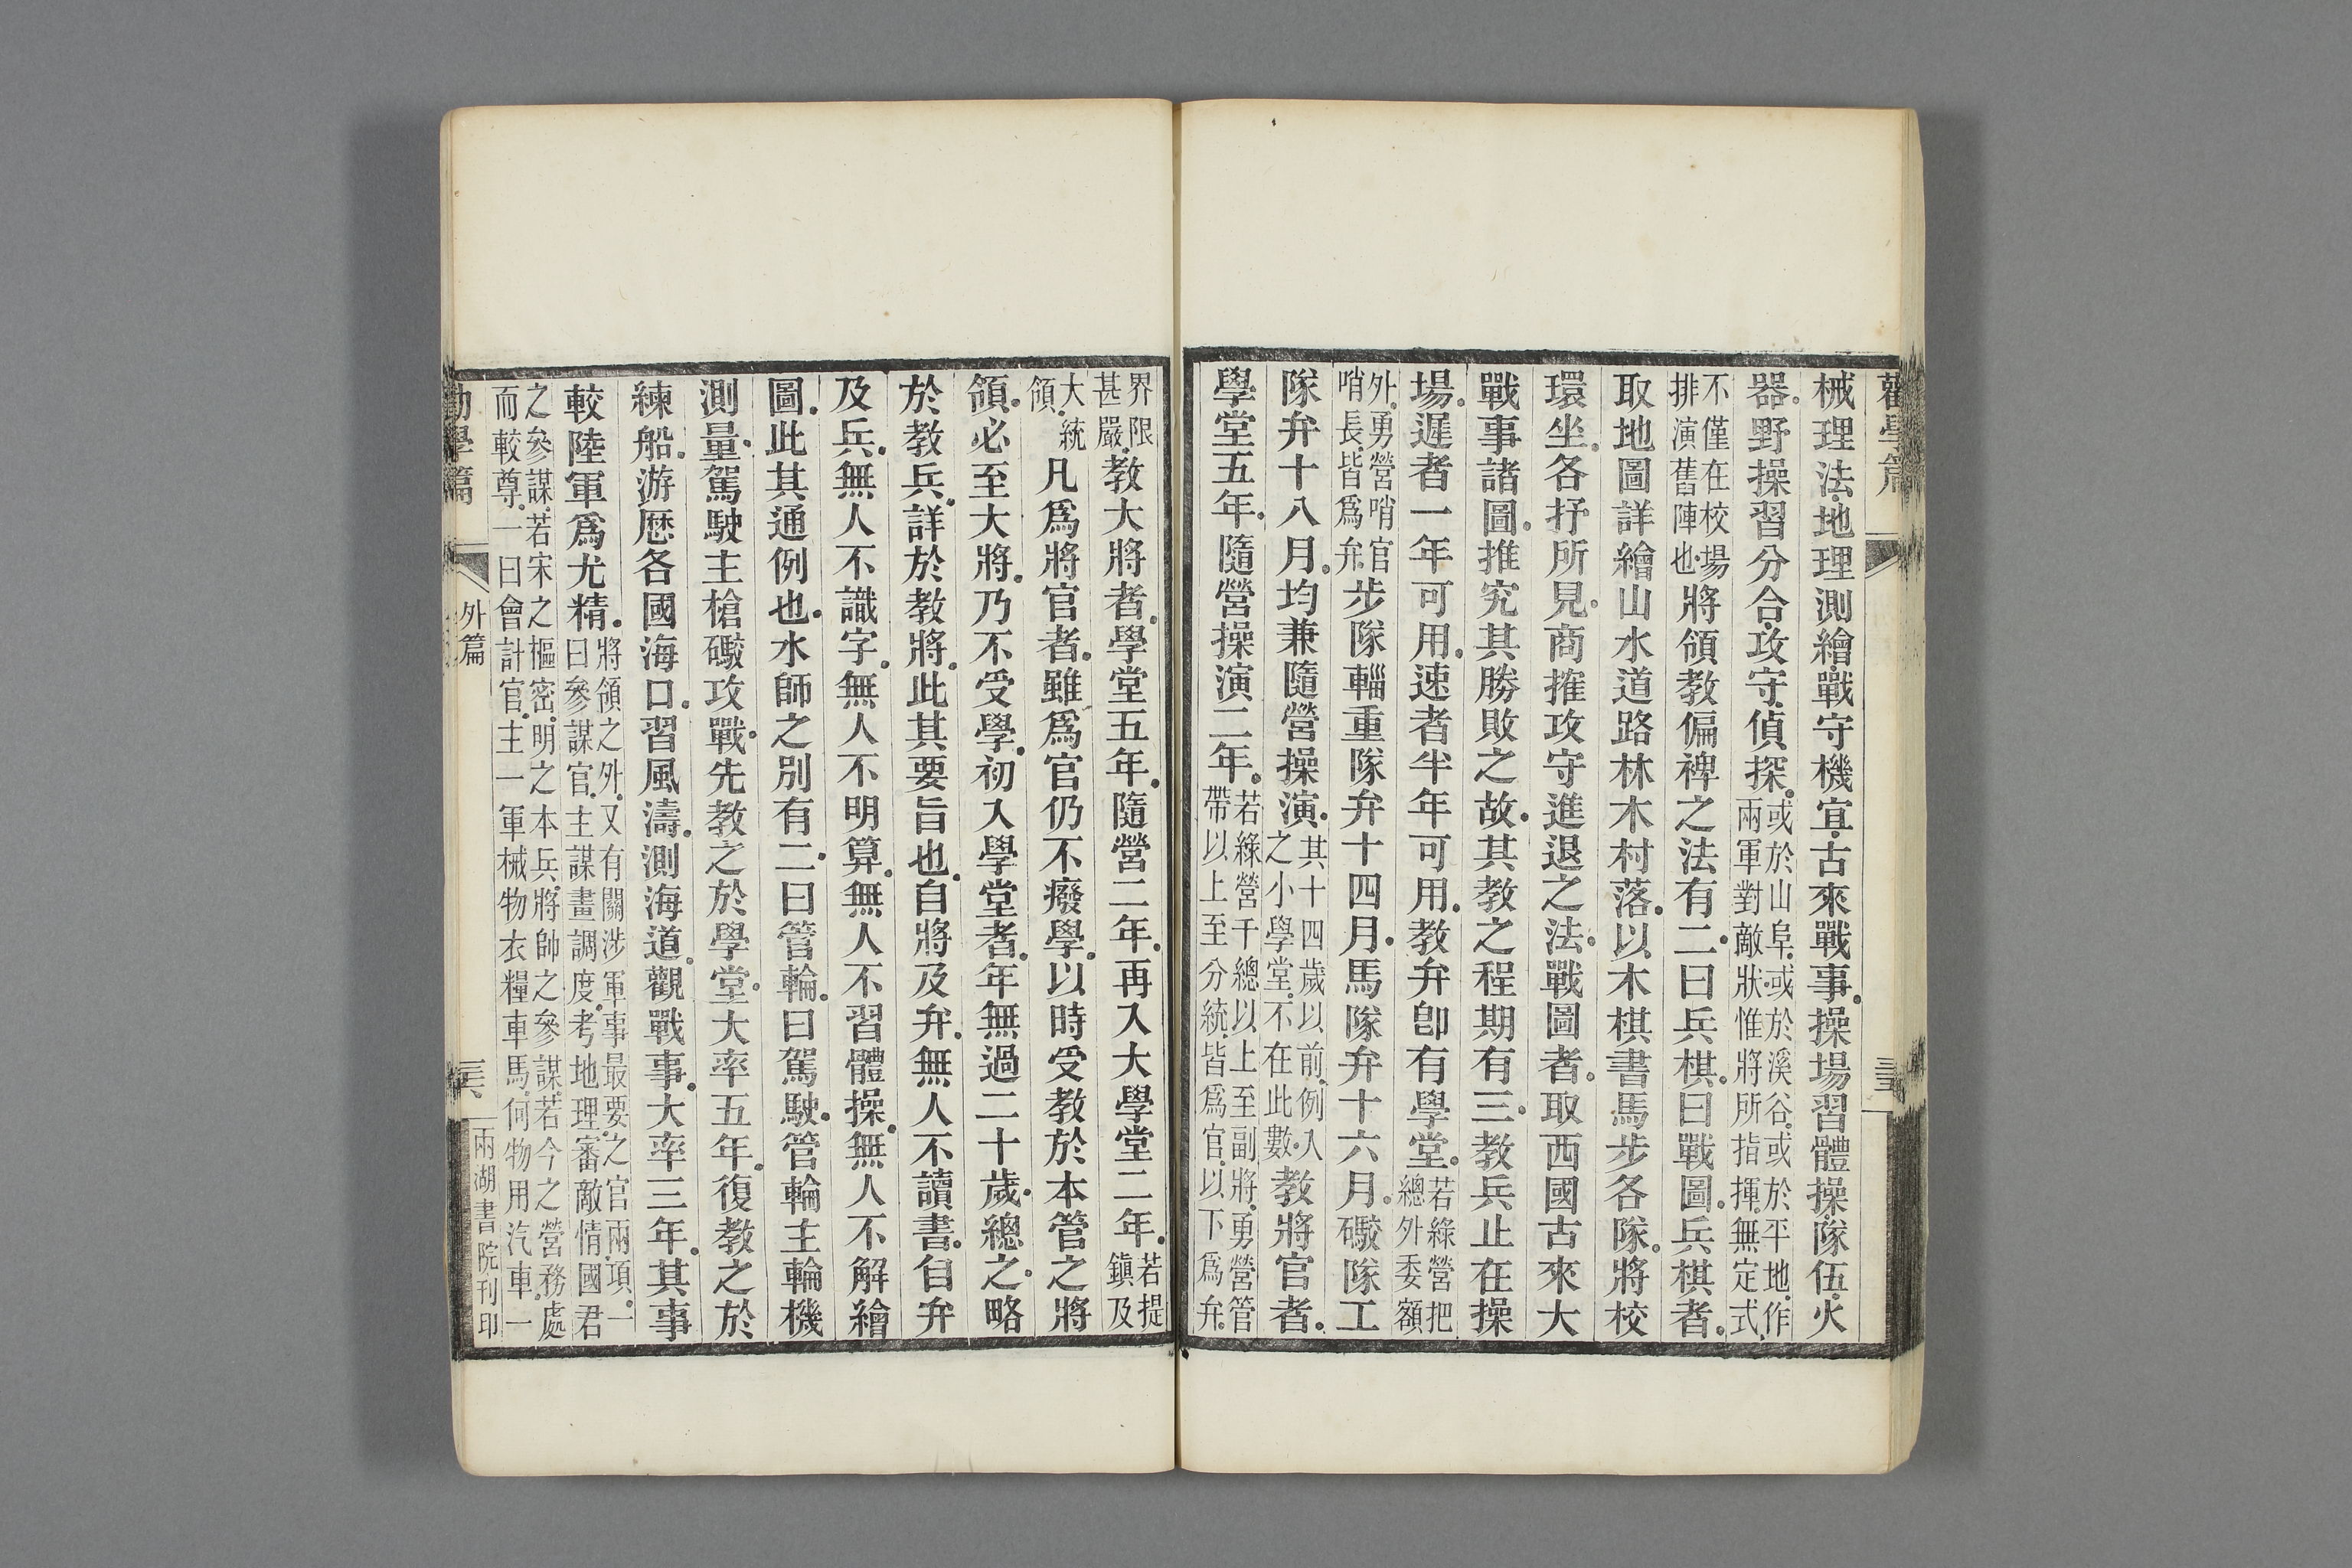 勸學篇
械理法。地理測繪。戰守機宜。古來戰事。操場習體操。隊伍。火
器。野操習分合。攻守。偵探。或於山阜。或於溪谷。或於平地。作兩軍對敵狀。惟將所指揮。無定式。
不僅在校場排演舊陣也。將領教偏裨之法有二。曰兵棋。曰戰圖。兵棋者。
取地圖詳繪山水道路林木村落。以木棋書馬步各隊。將校
環坐。各抒所見。商搉攻守進退之法。戰圖者。取西國古來大
戰事諸圖。推究其勝敗之故。其教之程期有三。教兵止在操
場。遲者一年可用。速者半年可用。教弁卽有學堂。若綠營把總外委額
外。勇營哨官哨長。皆爲弁。步隊輜重隊弁十四月。馬隊弁十六月。礮隊工
隊弁十八月。均兼隨營操演。其十四歲以前。例入之小學堂。不在此數。教將官者。
學堂五年。隨營操演二年。若綠營千總以上至副將。勇營管帶以上至分統。皆爲官。以下爲弁。
界限甚嚴。教大將者。學堂五年。隨營二年。再入大學堂二年。若提鎮及
大統領。凡爲將官者。雖爲官仍不癈學。以時受教於本管之將
領。必至大將。乃不受學。初入學堂者。年無過二十歲。總之。略
於教兵。詳於教將。此其要旨也。自將及弁。無人不讀書。自弁
及兵。無人不識字。無人不明算。無人不習體操。無人不解繪
圖。此其通例也。水師之別有二。曰管輪。曰駕駛。管輪主輪機
測量。駕駛主槍礮攻戰。先教之於學堂。大率五年。復教之於
練船。游歷各國海口。習風濤。測海道。觀戰事。大率三年。其事
較陸軍爲尤精。將領之外。又有關涉軍事最要之官兩項。一曰參謀官。主謀畫調度。考地理。審敵情。國君
之參謀。若宋之樞密。明之本兵。將帥之參謀。若今之營務處而較尊。一曰會計官。主一軍械物衣糧車馬。何物用汽車。一
勸學篇
外篇
三六
兩湖書院刊印